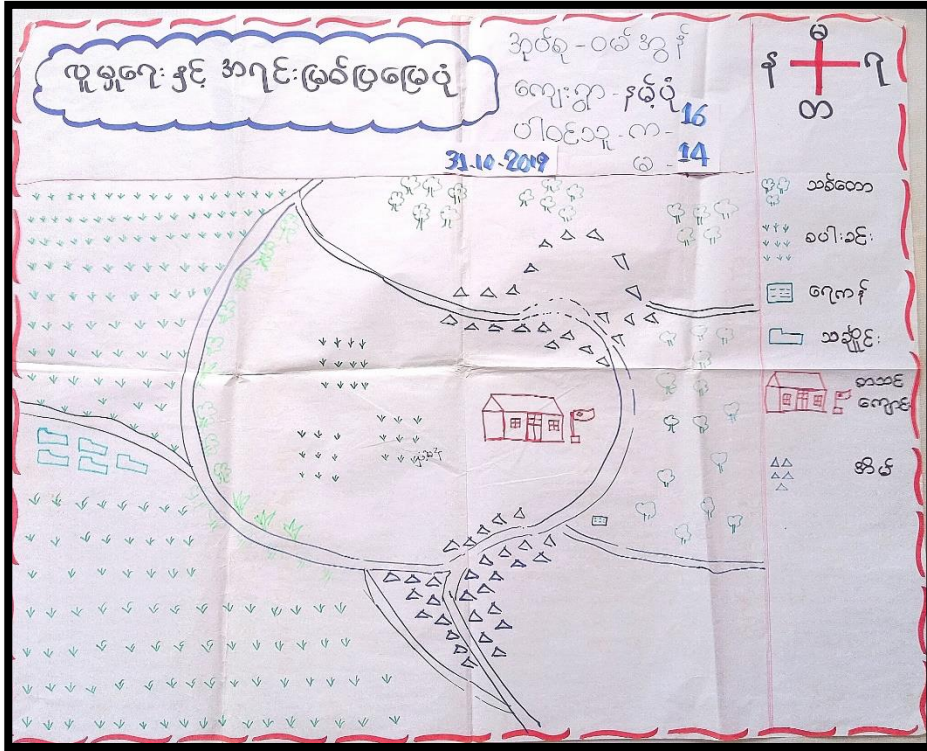 လူမှုရေးနှင့် အရင်းမြစ်ပြမြေပုံ
အုပ်စု - ဝမ်အွန်
ကျေးရွာ - နမ့်ပုံ
ပါဝင်သူ - က - 16
မ - 14
31-10-2019
မ
န
ရ
တ
သစ်တော
စပါးခင်း
ရေကန်
သင်္ချိုင်း
စာသင်
ကျောင်း
အိမ်